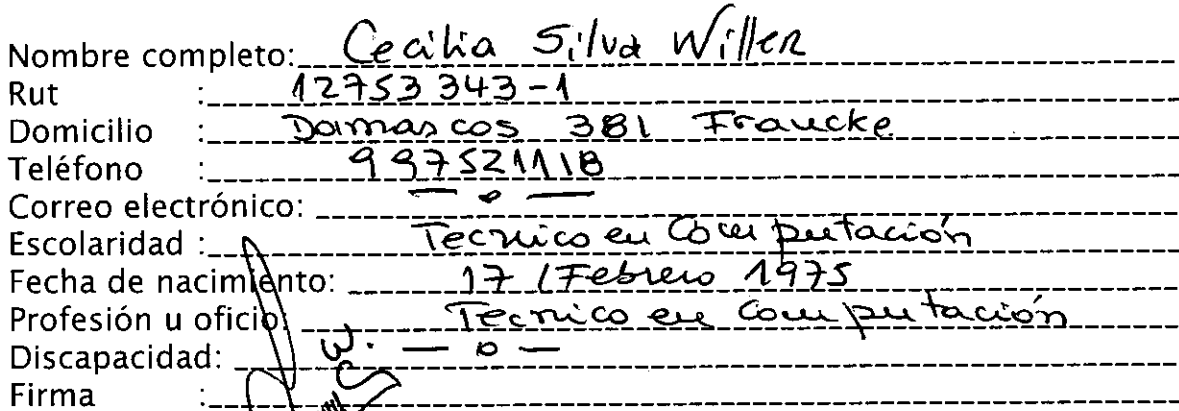 Nombre completo: Cecilia Silva Willer
Rut : 12753343-1
Domicilio : Damascos 381 Fraucke
Teléfono : 997521118
Correo electrónico: — o —
Escolaridad : Tecnico en Computación
Fecha de nacimiento: 17 / Febrero 1975
Profesión u oficio: Tecnico en Computación
Discapacidad: — o —
Firma :